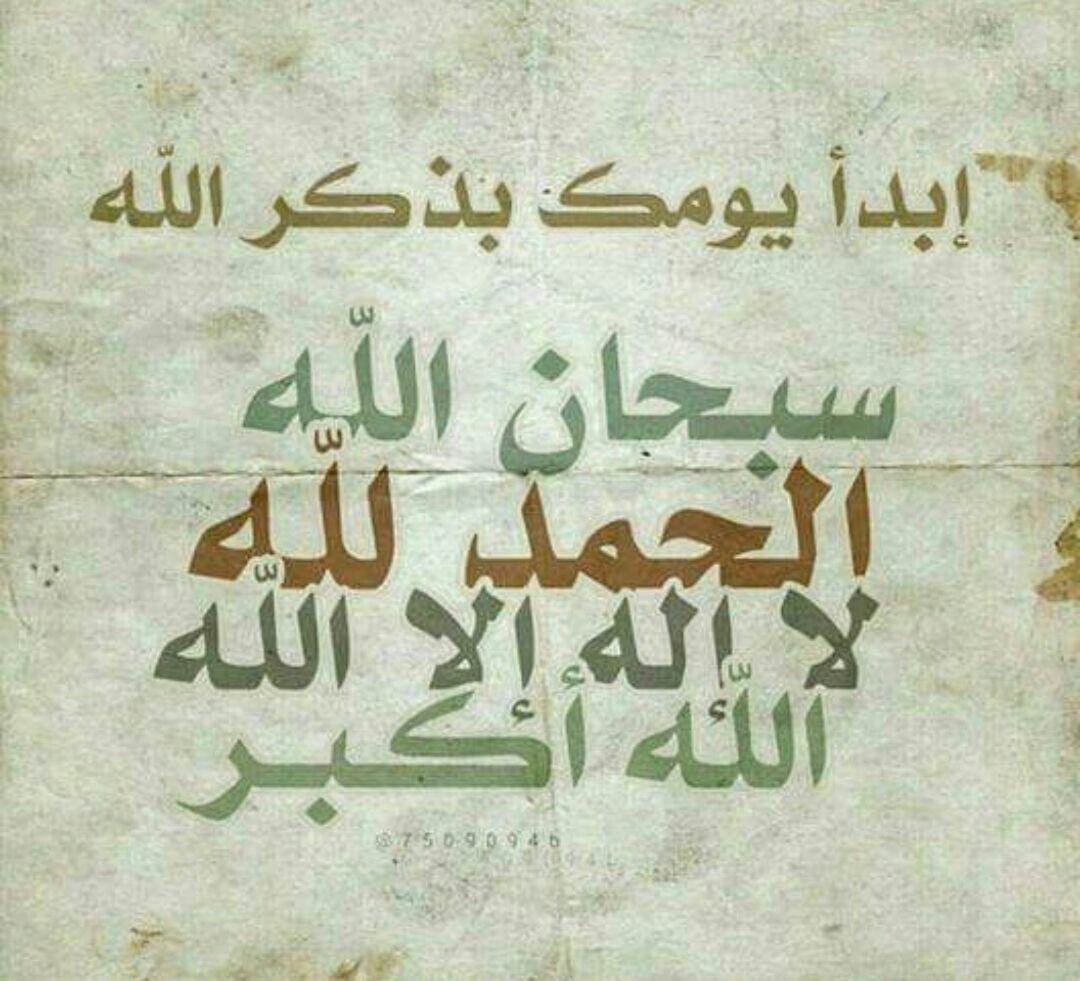 إبدأ يومك بذكر الله
سبحان الله
الحمد لله
لا إله إلا الله
الله أكبر
@75090946